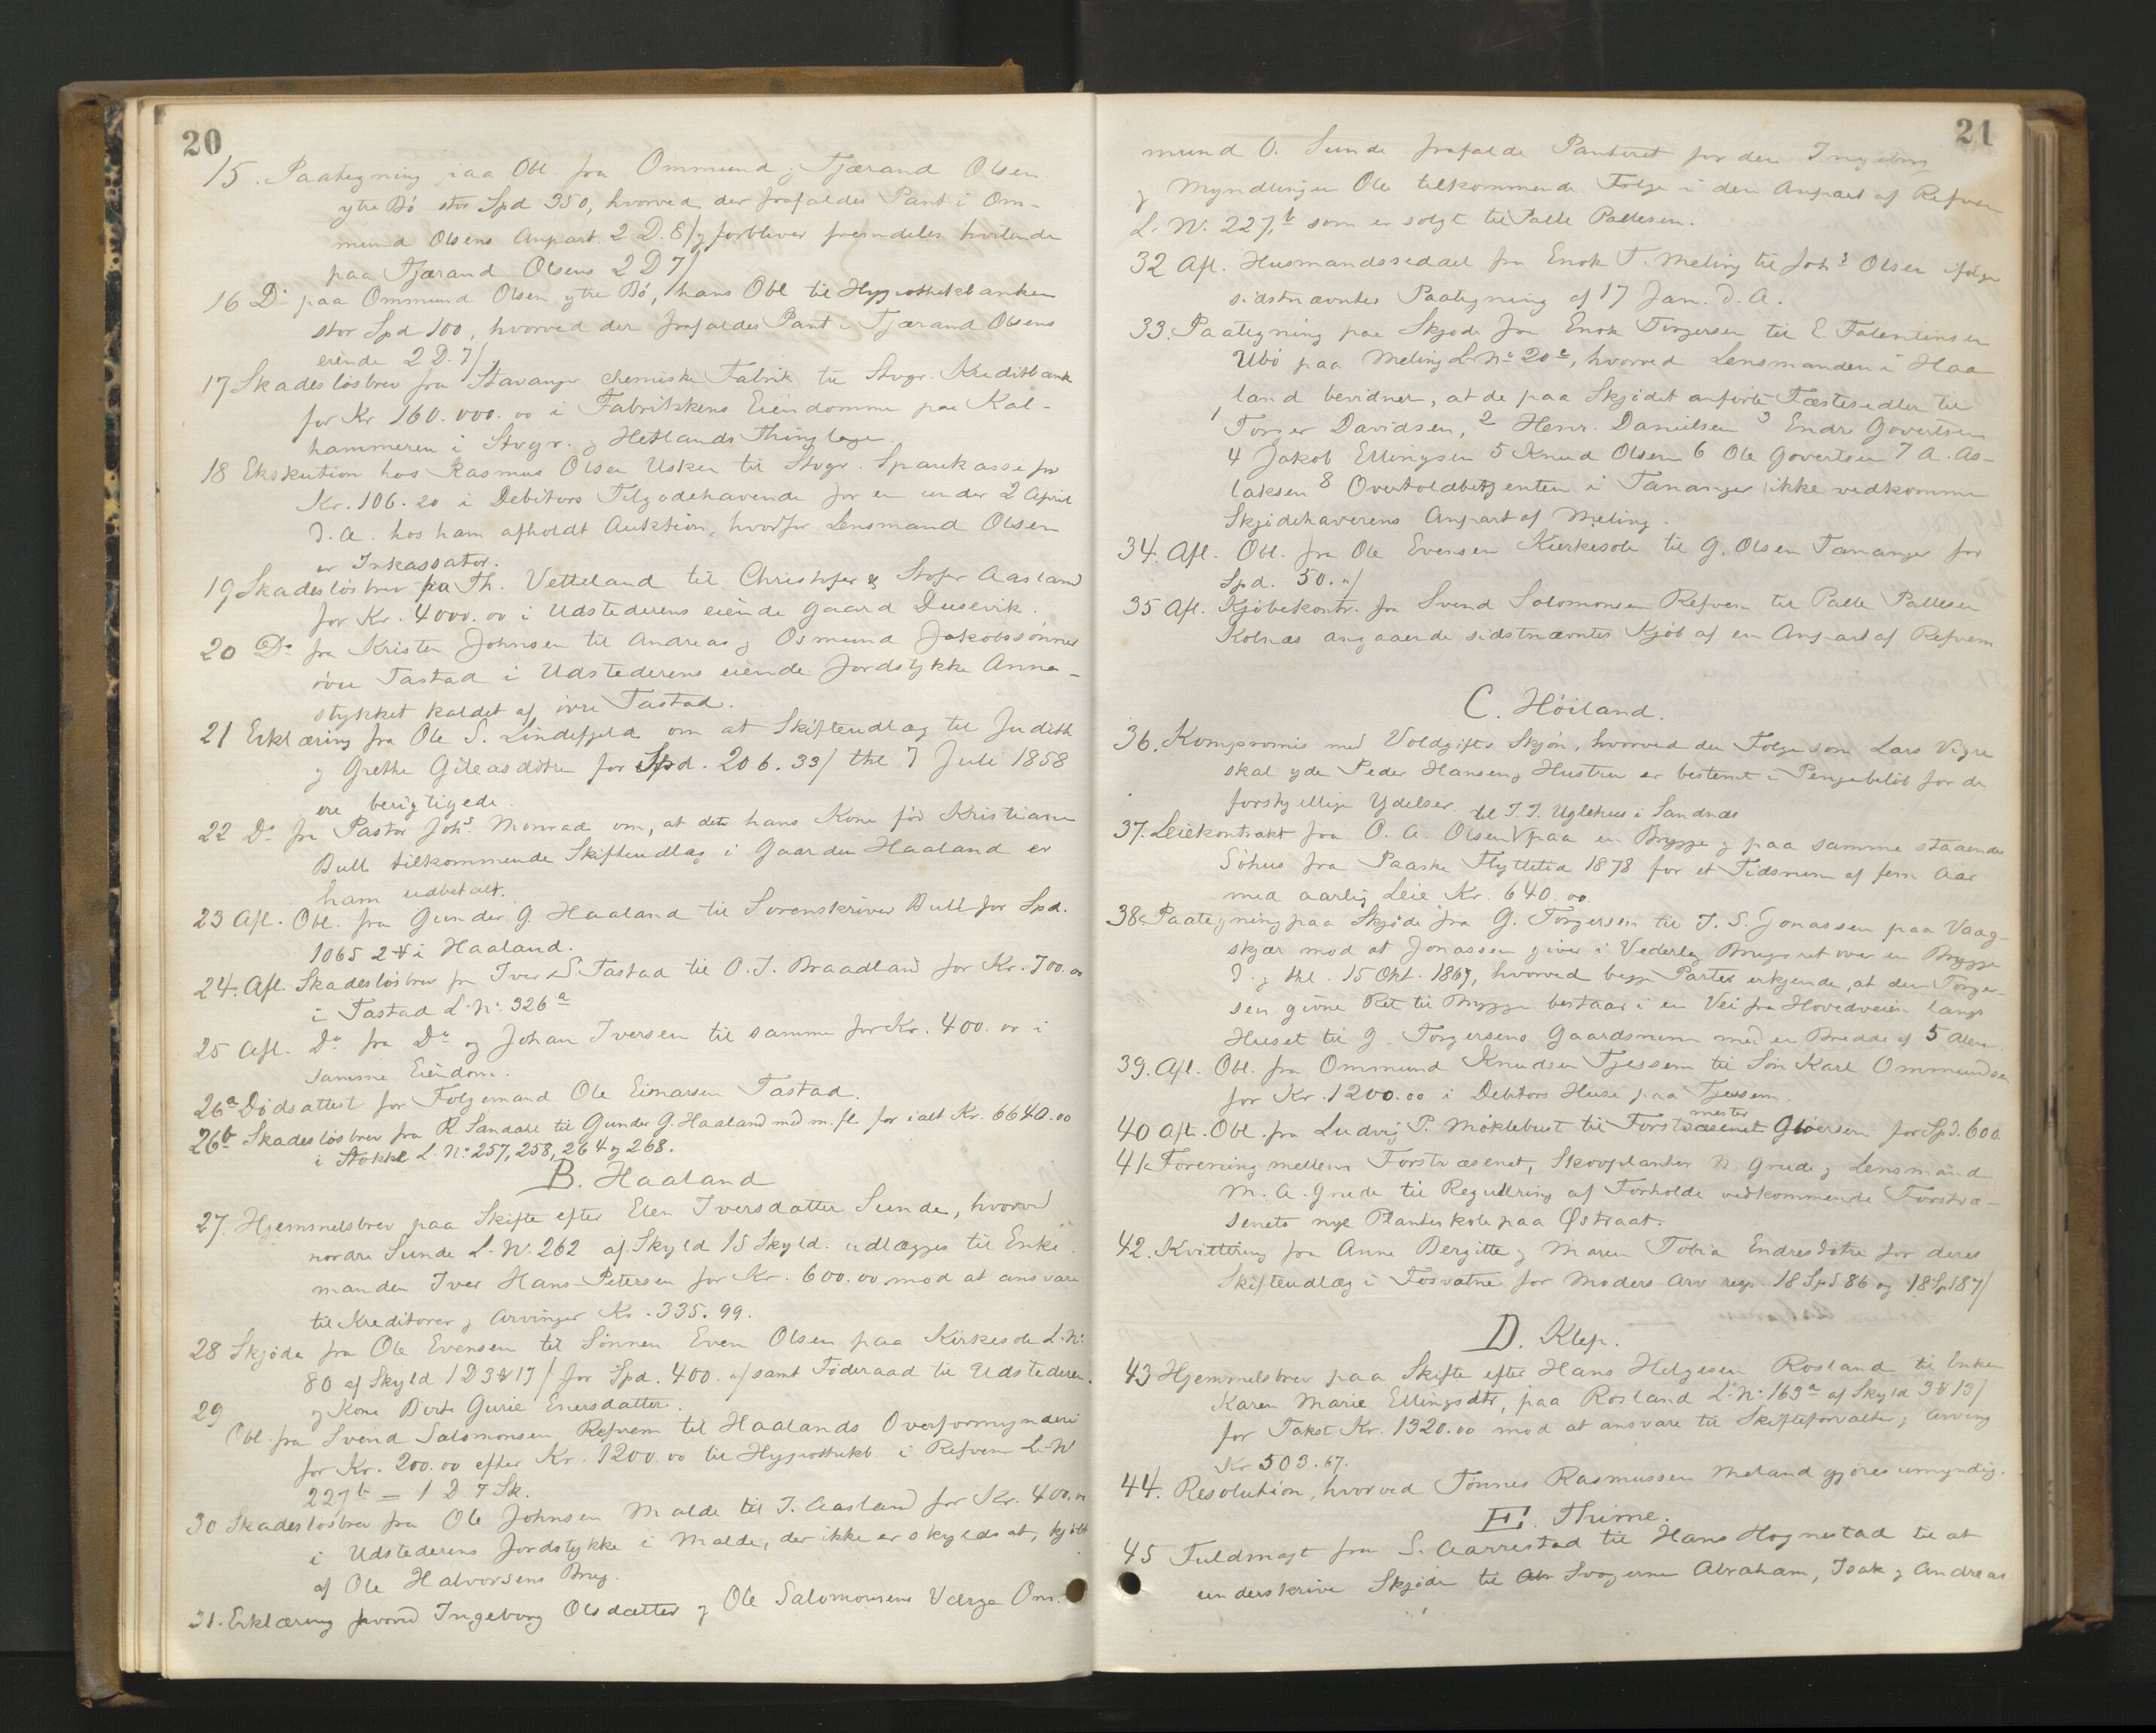 20
15. Paategning paa Obl. fra Ommund & Tjærand Olsen
ytre Bö stor Spd 350, hvorved der frafaldes Pant i Om-
mund Olsens Anpart 2 D. 8/ & forbliver fremdeles hvilende
paa Tjærand Olsens 2 D 7/
16 Do paa Ommund Olsen ytre Bö, hans Obl til Hypothekbanken
stor Spd 100, hvorved der frafaldes Pant i Tjærand Olsens
eiende 2 D. 7/.
17 Skadeslösbrev fra Stavanger chemiske Fabrik til Stvgr. Kreditbank
for Kr 160.000.00 i Fabrikkens Eiendomme paa Kal-
hammeren i Stvgr. & Hetlands Thinglage.
18 Ekskution hos Rasmus Olsen Usken til Stvgr. Sparekasse for
Kr. 106.20 i Debitors Tilgodehavende for en under 2 April
d. A. hos ham afholdt Auktion, hvorfor Lensmand Olsen
er Inkassator.
19 Skadeslösbrev fra Th. Vetteland til Christofer & Stofer Aasland
for Kr. 4000.00 i Udstederens eiende Gaard Dusevik.
20 Do fra Kristen Johnsen til Andreas & Osmund Jakobssönner
övre Tastad i Udstederens eiende Jordstykke Anna-
stykket kaldet af övre Tastad.
21 Erklæring fra Ole S. Lindefjeld om at Skifteudlæg til Judith
& Grethe Gileasdötre for Spd. 206.33/ thl 7 Juli 1858
ere berigtigede.
22 Do fra Pastor Johs. Monrad om, at dets hans Kone föd Kristiane
Bull tilkommende Skifteudlæg i Gaarden Haaland er
ham udbetalt.
23 Afl. Obl. fra Gunder G. Haaland til Sorenskriver Bull for Spd.
1065 2 ℔ i Haaland.
24. Afl. Skadeslösbrev fra Iver S. Tastad til O. J. Braadland for Kr. 700.00
i Tastad L. No. 326 a
25 Afl. Do fra Do og Johan Iversen til samme for Kr. 400.00 i
samme Eiendom.
26 a Dödsattest for Folgemand Ole Einarsen Tastad.
26 b Skadeslösbrev fra R. Sandahl til Gunder G. Haaland med m. fl. for ialt Kr. 6640.00
i Stokke L. No. 257, 258, 264 & 268.
B. Haaland
27. Hjemmelsbrev paa Skifte efter Elen Iversdatter Sunde, hvorved
nordre Sunde L. No. 262 af Skyld 15 Skyld. udlægges til Enke-
manden Iver Hans Petersen for Kr. 600.00 mod at ansvare
til Kreditorer & Arvinger Kr. 335.99.
28 Skjöde fra Ole Evensen til Sönnen Even Olsen paa Kirkesole L. No.
80 af Skyld 1 D 3 ℔ 17/ for Spd. 400. "/ samt Föderaad til Udstederen
& Kone Berte Gurie Enersdatter.
29 Obl. fra Svend Salomonsen Refvem til Haalands Overformynderi
for Kr. 200.00 efter Kr. 1200.00 til Hypothekb. i Refvem L. No
227 b = 1 D. 7 Sk.
30 Skadeslösbrev fra Ole Johnsen Malde til T. Aasland for Kr. 400.00
i Udstederens Jordstykke i Malde, der ikke er skyldsat, kjöbt
af Ole Halvorsens Brug.
31. Erklæring hvorved Ingeborg Olsdatter & Ole Salomonsens Værge Om-
21
mund O. Sunde frafalde Panteret for den Ingeborg
& Myndlingen Ole tilkommende Folge i den Anpart af Refvem
L. No. 227, b som er solgt til Palle Pallesen.
32 Afl. Husmandsseddel fra Enok T. Meling til Johs Olsen ifølge
sidstnævntes Paategning af 17 Jan. d. A.
33. Paategning paa Skjöde fra Enok Torgersen til E. Falentinsen
Ubö paa Meling L. No. 20 c, hvorved Lensmanden i Haa
land bevidner, at de paa Skjödet anførte Fæstesedler til
1 Torger Davidsen, 2 Henr. Danielsen 3 Endre Govertsen
4 Jakob Ellingsen 5 Knud Olsen 6 Ole Govertsen 7 A. As-
laksen 8 Overtoldbetjenten i Tananger ikke vedkomme
Skjödehaverens Anpart af Meling.
34. Afl. Obl. fra Ole Evensen Kirkesole til G. Olsen Tananger for
Spd. 50. "/
35 Afl. Kjöbekontr. fra Svend Solomonsen Refvem til Palle Pallesen
Kolnæs angaaende sidstnævntes Kjöb af en Anpart af Refvem
C. Höiland.
36. Kompromis med Voldgifts Skjön, hvorved den Folge som Lars Vigre
skal yde Peder Hansen & Hustru er bestemt i Pengebelöb for de
forskjellige Ydelser.
til T. T. Uglehus i Sandnæs
37. Leiekontrakt fra O. A. Olsen paa en Brygge & paa samme staaende
Söhus fra Paaske Flyttetid 1878 for et Tidsrum af fem Aar
med aarlig Leie Kr. 640.00
38. Paategning paa Skjöde fra G. Torgersen til J. S. Jonassen paa Vaag-
skjær mod at Jonassen giver i Vederlag Brugsret over en Brygge
d. & thl. 15 Okt. 1867, hvorved begge Parter erkjende, at den Torger-
sen givne Ret til Brygge bestaar i en Vei fra Hovedveien langs
Huset til G. Torgersens Gaardsrum med en Bredde af 5 Alen
39. Afl. Obl. fra Ommund Knudsen Tjessem til Sön Karl Ommundsen
for Kr. 1200.00 i Debitors Huse paa Tjessem.
mester
40 Afl. Obl. fra Ludvig P. Möklebust til Forstvæsenet Glöersen for Spd. 600
41. Forening mellem Forstvæsenet, Skovplanter N. Grude & Lensmand
M. A. Grude til Regullring af Forholde vedkommende Forstvæ-
senets nye Planteskole paa Østraat.
42. Kvittering fra Anne Bergitte & Maren Tobia Endresdötre for deres
Skifteudlæg i Fosvatne for Moders Arv resp. 18 Spd 86 og 18 Spd 87/
D. Klep.
43 Hjemmelsbrev paa Skifte efter Hans Helgesen Rosland til Enken
Karen Marie Ellingsdtr, paa Rosland L. No. 163 a af Skyld 3 ℔ 13/
for Takst Kr. 1320.00 mod at ansvare til Skifteforvalter & Arving
Kr 503.67.
44. Resolution, hvorved Tönnes Rasmussen Meland gjöres umyndig.
E. Thime.
45 Fuldmagt fra S. Aarrestad til Hans Hognestad til at
underskrive Skjöde til Abr Svogerne Abraham, Isak & Andreas